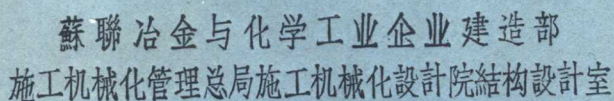 蘇聯冶金与化学工业企业建造部
施工机械化管理总局施工机械化設計院結构設計室